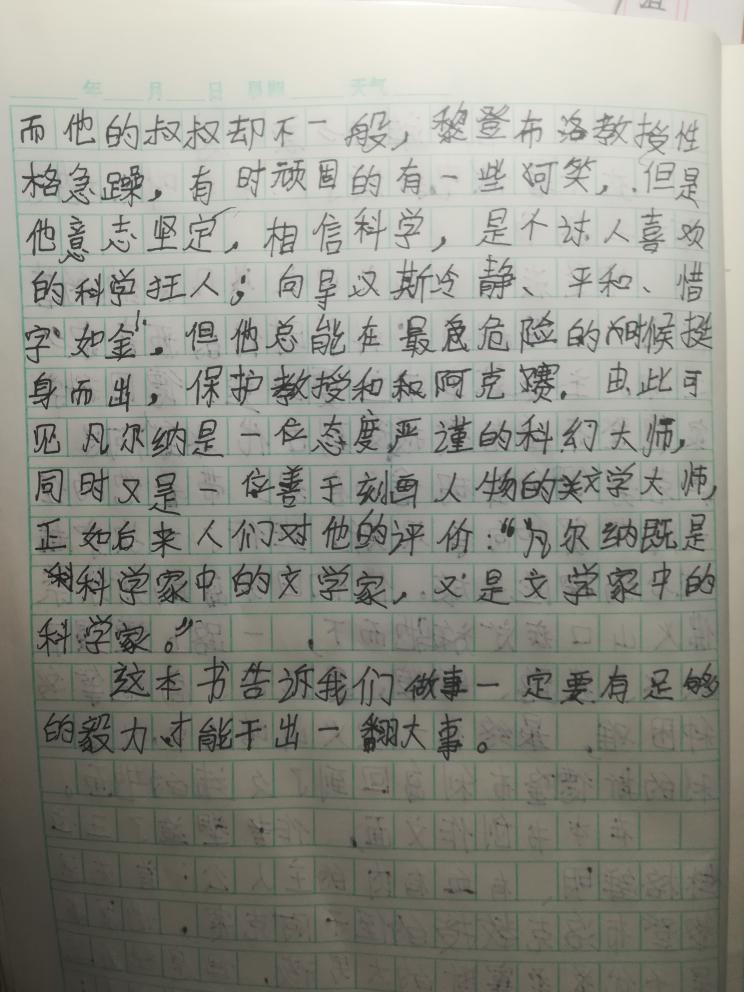 年 月 日 星期 天气
而他的叔叔却不一般，黎登布洛教授性
格急躁，有时顽固的有一些可笑，但是
他意志坚定，相信科学，是不讨人喜欢
的科学狂人；向导汉斯冷静、平和、惜
字“如金”。但他总能在最危急危险的时候挺
身而出，保护教授和和阿克赛。由此可
见凡尔纳是一位态度严谨的科幻大师，
同时又是一位善于刻画人物的文学大师，
正如后来人们对他的评价：“凡尔纳既是
科学家中的文学家，又是文学家中的
科学家。”
这本书告诉我们做事一定要有足够
的毅力才能干出一翻大事。